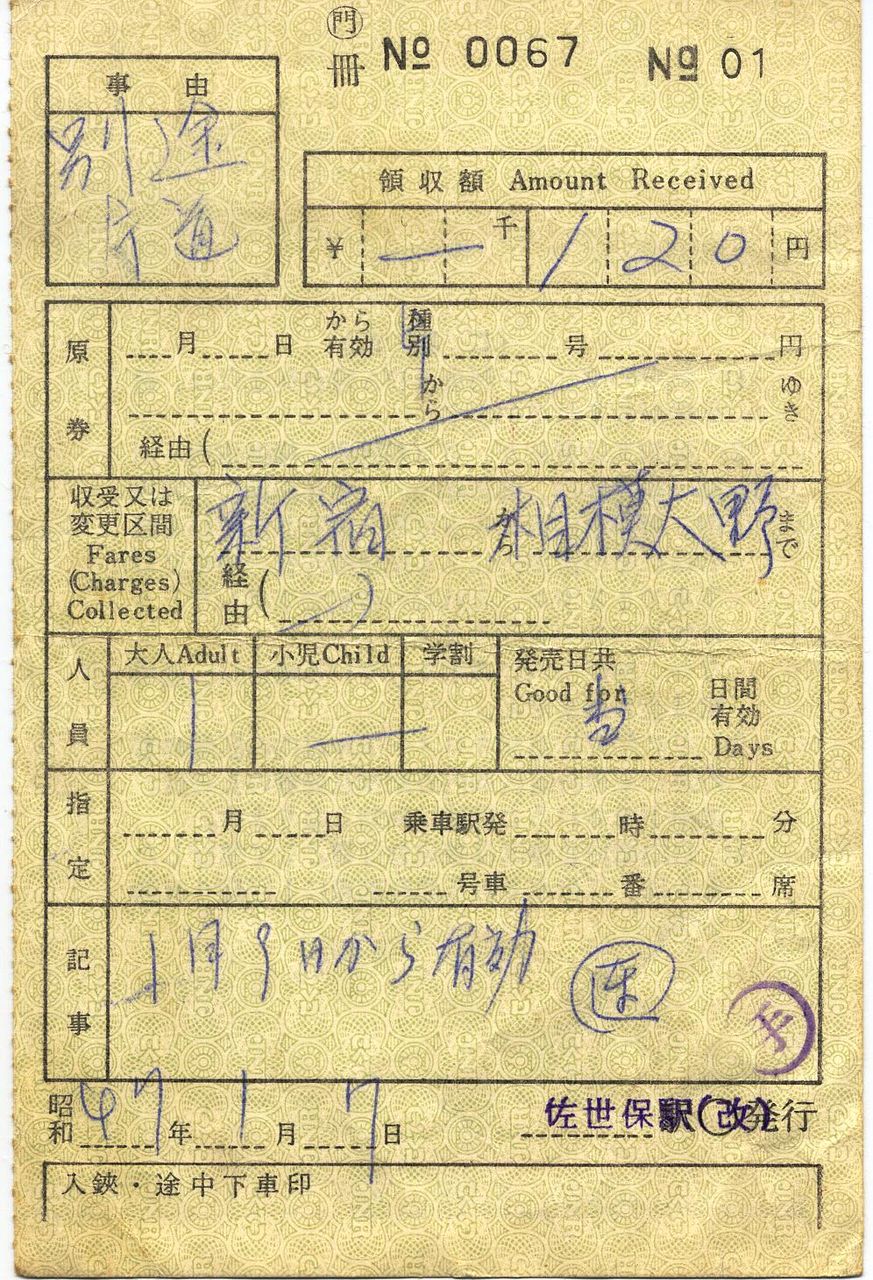 門
冊 № 0067 № 01
事由
別途
片道
領収額 Amount Received
¥ 千 120 円
原券
月 日 から有効 種別 号 円
から ゆき
経由(
収受又は変更区間 Fares (Charges) Collected
新宿 から 相模大野 まで
経由( )
人員
大人Adult 小児Child 学割
1
発売日共 Good for 当 日間有効 Days
指定
月 日 乗車駅発 時 分
号車 番 席
記事
1月9日から有効 連
昭和47年1月7日 佐世保駅(改)発行
入鋏・途中下車印